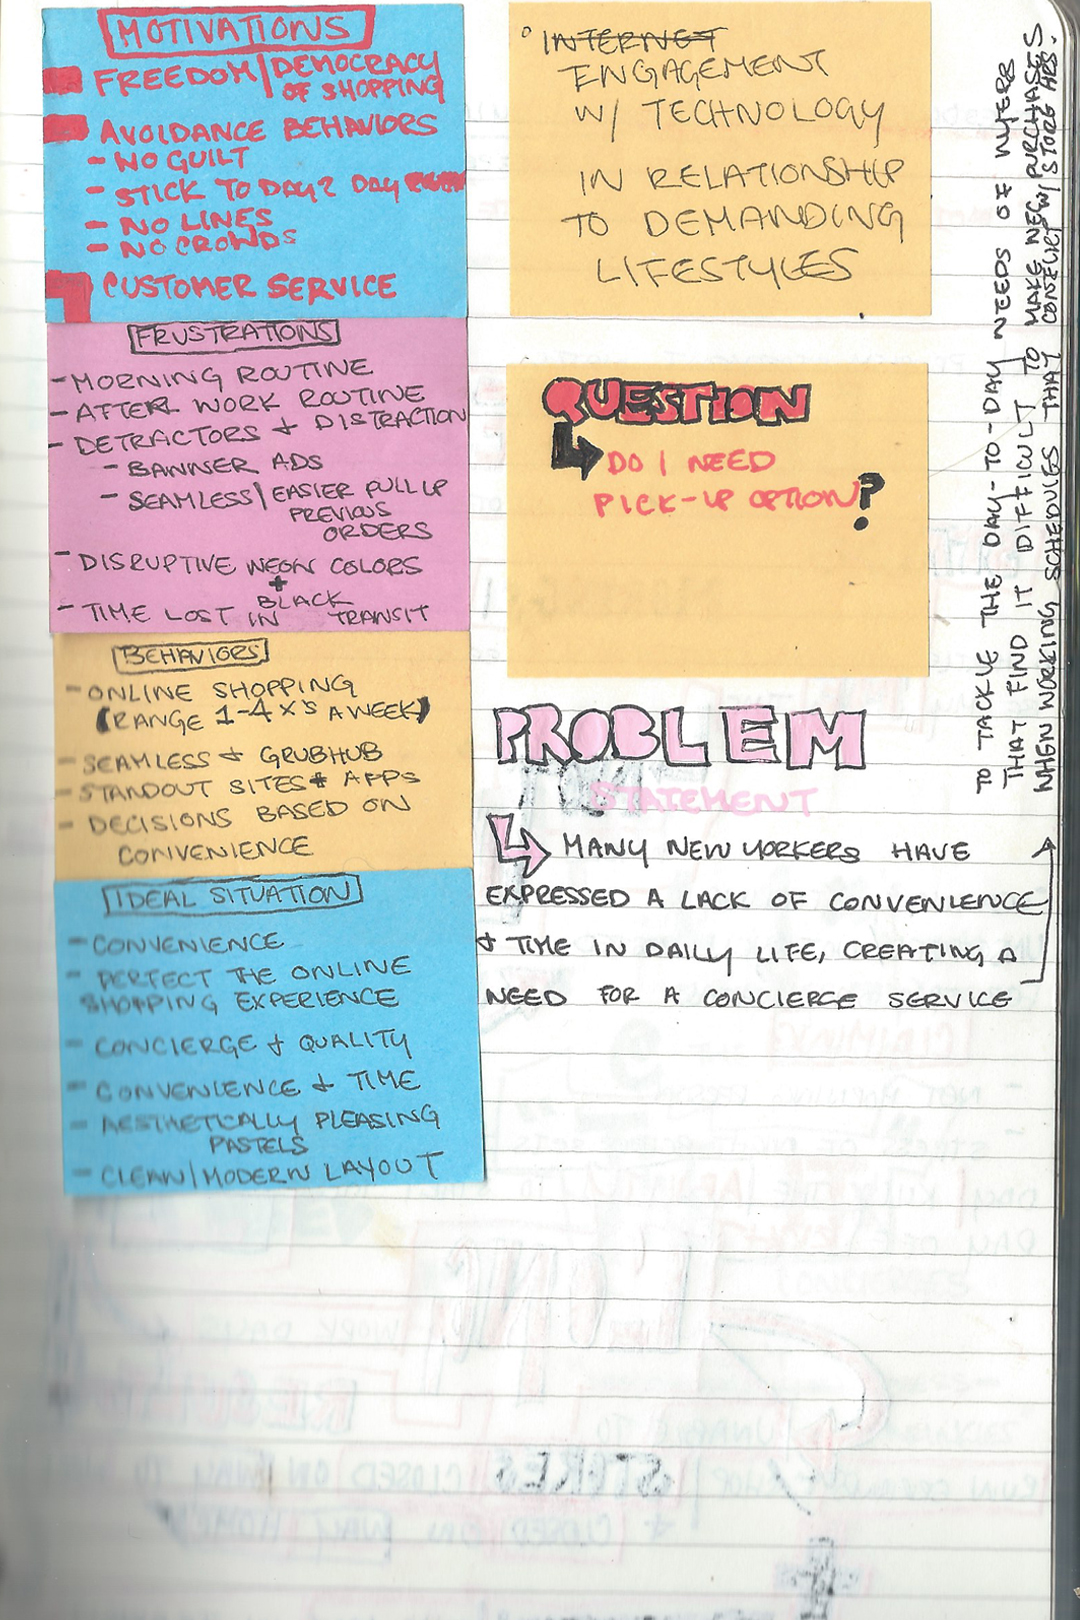 MOTIVATIONS
FREEDOM/DEMOCRACY
OF SHOPPING
AVOIDANCE BEHAVIORS
- NO GUILT
- STICK TO DAY 2 DAY
- NO LINES
- NO CROWDS
CUSTOMER SERVICE
FRUSTRATIONS
- MORNING ROUTINE
- AFTER WORK ROUTINE
- DETRACTORS & DISTRACTION
- BANNER ADS
- SEAMLESS/EASIER PULL UP
PREVIOUS
ORDERS
- DISRUPTIVE NEON COLORS
+
BLACK
- TIME LOST IN TRANSIT
BEHAVIORS
- ONLINE SHOPPING
(RANGE 1-4 X'S A WEEK)
- SEAMLESS & GRUBHUB
- STANDOUT SITES + APPS
- DECISIONS BASED ON
CONVENIENCE
IDEAL SITUATION
- CONVENIENCE
- PERFECT THE ONLINE
SHOPPING EXPERIENCE
- CONCIERGE & QUALITY
- CONVENIENCE & TIME
- AESTHETICALLY PLEASING
PASTELS
- CLEAN/MODERN LAYOUT
INTERNET
ENGAGEMENT
W/ TECHNOLOGY
IN RELATIONSHIP
TO DEMANDING
LIFESTYLES
QUESTION
DO I NEED
PICK-UP OPTION?
PROBLEM
STATEMENT
MANY NEW YORKERS HAVE
EXPRESSED A LACK OF CONVENIENCE
& TIME IN DAILY LIFE, CREATING A
NEED FOR A CONCIERGE SERVICE
TO TACKLE THE DAY-TO-DAY NEEDS OF NYERS
THAT FIND IT DIFFICULT TO MAKE NEW PURCHASES
WHEN WORKING SCHEDULES THAT CONFLICT W/ STORE HRS.